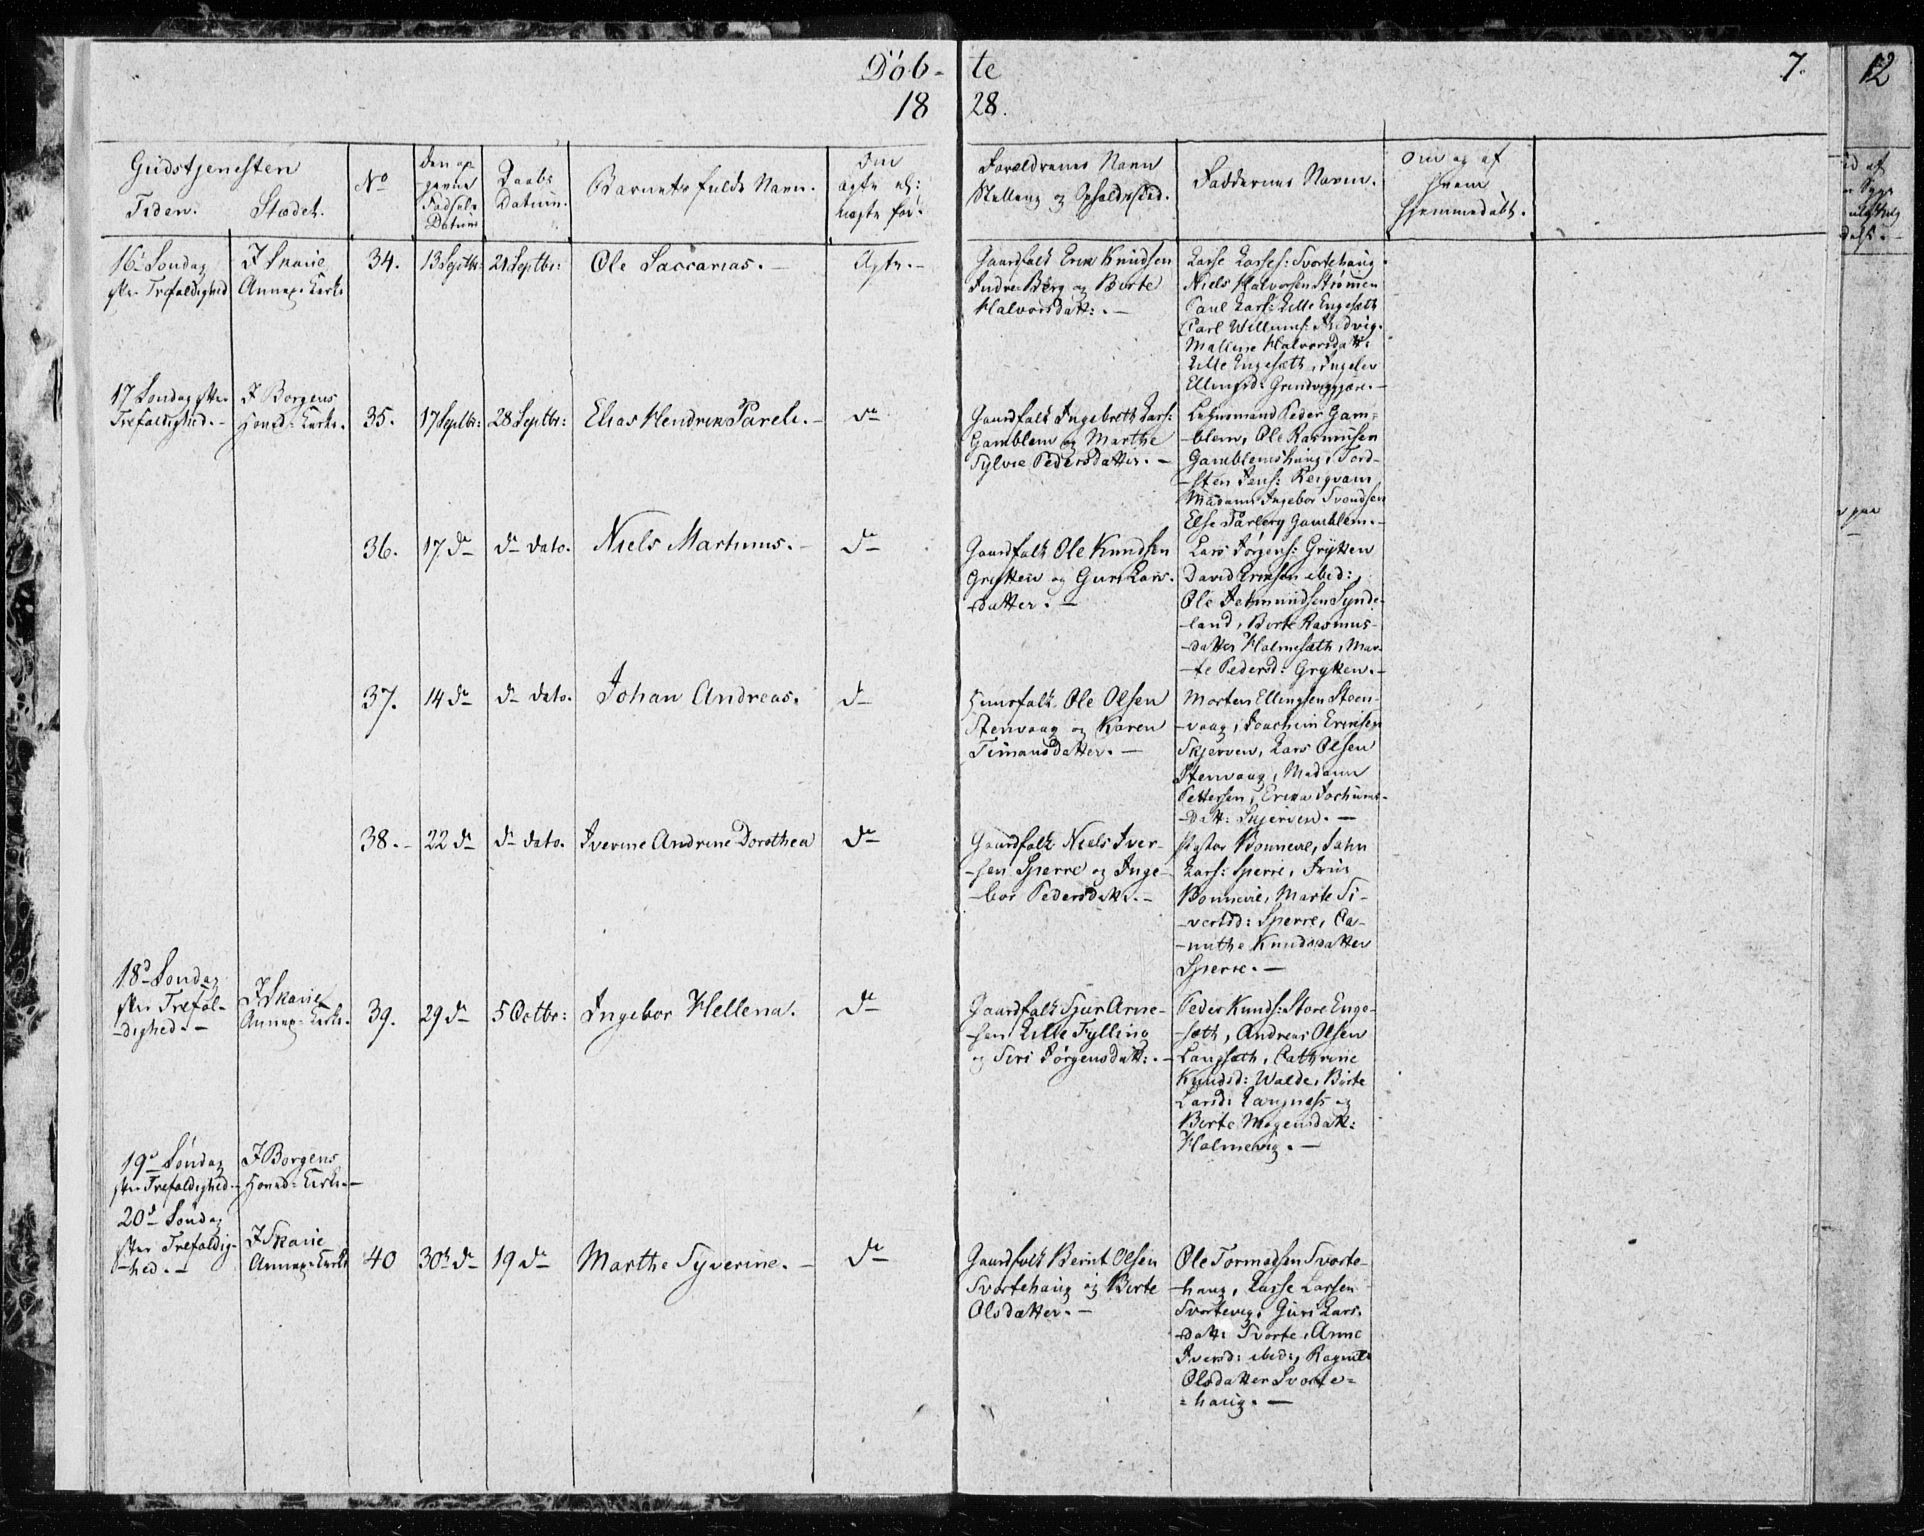 Døb-
te
7.
12
18
28.
Gudstjenesten
Tiden.
Stædet.
No
Den op
givne
Fødsels
Datum
Daabs
Datum.
Barnets fulde Navn.
Om
ægte el:
uægte fød.
Forældrenes Navn
Stilling og Opholdssted.
Faddernes Navn.
Om og af
hvem
hjemmedøbt.
16d Søndag
efter Trefoldighed
I Skarie
Annex-Kirke
34.
13 Septbr:
21 Septbr:
Ole Saccarias. —
Ægte. —
Gaardfolk Erik Knudsen
Indre Berg og Berte
Halvorsdatt: . —
Lasse Lasses: Svortehaug
Niels Halvorsen Strømen
Paul Lars: Lille Engesæth
Carl Willums:
Malene Halvorsdatt:
Lille Engesæth, Ingeler
Ellingsd:
17 Søndag efter
Trefoldighed. -
I Borgens
Hoved-Kirke.
35.
17 Septbr:
28 Septbr:
Elias Hendrik Pareli. —
do
Gaardfolk Ingebreth Lars:
Gamblem og Marthe
Sylvie Pedersdatter. —
Lehnsmand Peder Gam-
-blem, Ole Rasmusen
Gamblemshaug, Tord-
-sten Jens: Reiqvam
Madame Ingebor Svendsen
Else Gamblem. —
36.
17 do
do dato.
Niels Martinus. —
do
Gaardfolk Ole Knudsen
Grytten og Guri Lars-
-datter. —
Lars Jørgens: Grytten
David Eriksen ibid:
Ole Synde-
-land, Berte Rasmus-
-datter Holmesæth, Mar-
-te Pedersd: Grytten. —
37.
14 do
do dato.
Johan Andreas.
do
Huusfolk Ole Olsen
Stenvaag og Karen
Timansdatter. —
Morten Ellingsen Steen-
-vaag, Joachim Eriksen
Skjerven, Lars Olsen
Stenvaag, Madame
Pettersen, Erika Jochums-
-datt: Skjerven. —
38. -
22 do
do dato.
Iverine Andrine Dorothea
do
Gaardfolk Niels Iver-
-sen Sperre og Inge-
-bor Pedersdatt: . —
Pastor Bonnevie, John
Lars: Sperre, Frue
Bonnevie, Marte Si-
-vertsd: Sperre, Ca-
-nuthe Knudsdatter
Sperre. —
18d Søndag
efter Trefol-
-dighed. —
I Skarie
Annex-Kirke.
39.
29 do
5 Octbr:
Ingebor Hellena.
do
Gaardfolk Sjur Arne-
-sen Lille Tylling
og Siri Jørgensdatt: . —
Peder Knuds: Store Enge-
-sæth, Andreas Olsen
Langsæth, Cathrine
Knudsd: Walde, Berte
Larsd: Langnæss og
Berte Mogensdatt:
Holmevig. —
19d Søndag
efter Trefoldighed. -
I Borgens
Hoved-Kirke. —
20d Søndag
efter Trefoldig-
-hed. —
I Skarie
Annex-Kirke
40
30te do
19 do
Marthe Syverine. —
do
Gaardfolk Bernt Olsen
Svortehaug og Berte
Olsdatter. —
Ole Tormodsen Svorte-
-haug, Lasse Larsen
Svortevig, Guri Lars-
-datt: Svorte, Anne
Iversd: ibid:, Ragnil
Olsdatter Svorte-
-haug. —